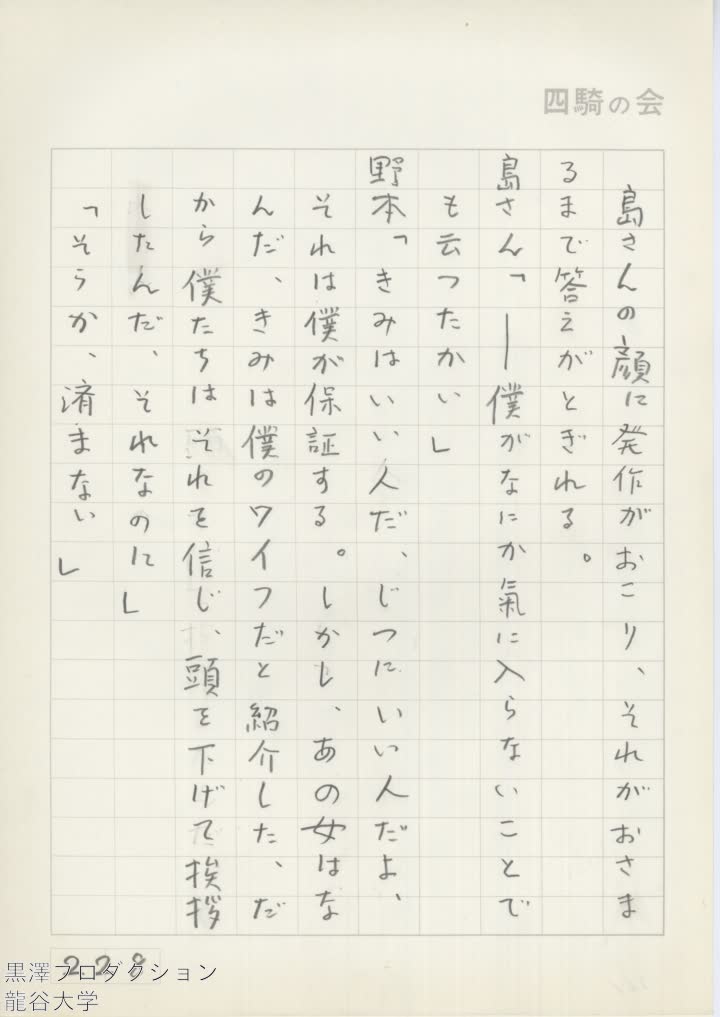 四騎の会
島さんの顔に発作がおこり、それがおさま
るまで答えがとぎれる。
島さん「――僕がなにか氣に入らないことで
も云つたかい」
野本「きみはいい人だ、じつにいい人だよ、
それは僕が保証する。しかし、あの女はな
んだ、きみは僕のワイフだと紹介した、だ
から僕たちはそれを信じ、頭を下げて挨拶
したんだ、それなのに」
「そうか、済まない」
黒澤プロダクション
龍谷大学